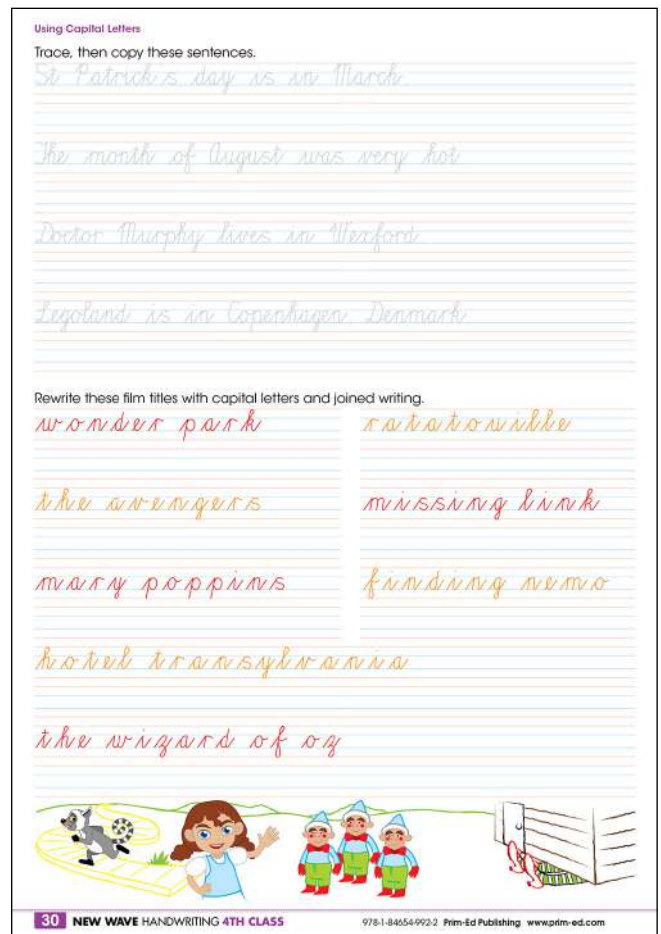 Using Capital Letters
Trace, then copy these sentences.
St Patrick's day is in March.
The month of August was very hot.
Doctor Murphy lives in Wexford.
Legoland is in Copenhagen, Denmark.
Rewrite these film titles with capital letters and joined writing.
wonder park
ratatouille
the avengers
missing link
mary poppins
finding nemo
hotel transylvania
the wizard of oz
30 NEW WAVE HANDWRITING 4TH CLASS
978-1-84654-992-2 Prim-Ed Publishing www.prim-ed.com